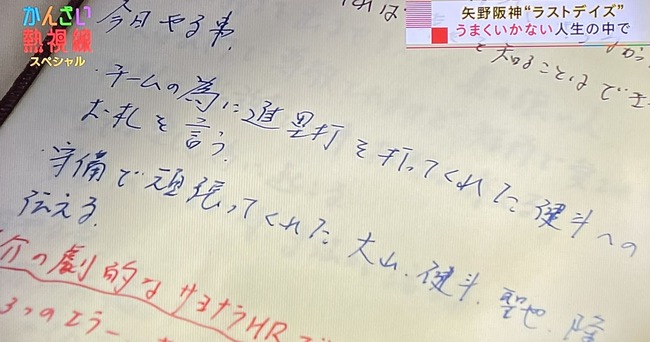 かんさい
熱視線
スペシャル
矢野阪神“ラストデイズ”
うまくいかない人生の中で
を知ることはでき
今日やる事.
・チームの為に進塁打を打ってくれた健斗への
お礼を言う.
・守備で頑張ってくれた大山、健斗、聖也、隆
伝える.
介の劇的なサヨナラHRで
3つのエラー